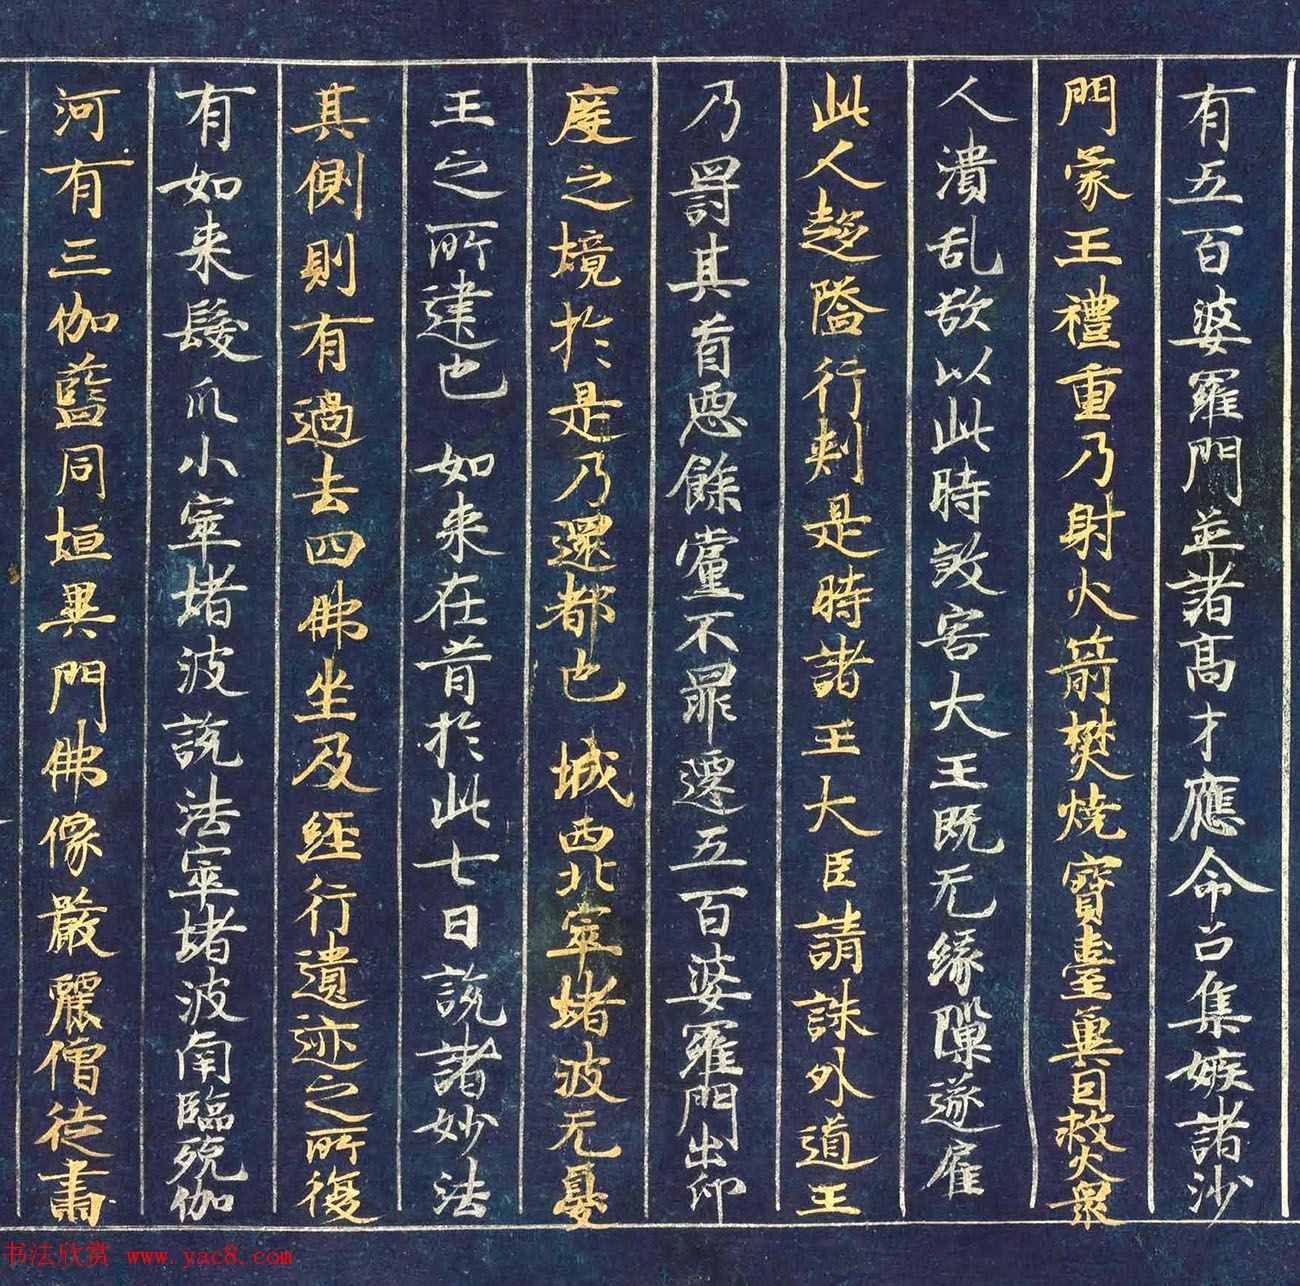 有五百婆羅門並諸髙才應命召集嫉諸沙
門蒙王禮重乃射火箭樊燒寶臺冀因救火衆
人潰乱欲以此時敚害大王既无緣隟遂雇
此人趍隘行刾是時諸王大臣請誅外道王
乃罸其首惡餘黨不罪遷五百婆羅門出印
度之境於是乃還都也 城西北窣堵波无憂
王之所建也 如来在昔於此七日說諸妙法
其側則有過去四佛坐及經行遺迹之所復
有如来髮爪小窣堵波說法窣堵波南臨殑伽
河有三伽藍同垣異門佛像嚴麗僧徒肅
书法欣赏 www.yac8.com